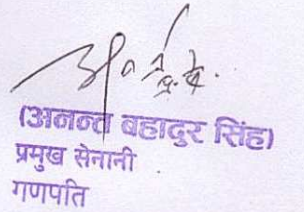 (अनन्त बहादुर सिंह)
प्रमुख सेनानी
गणपति